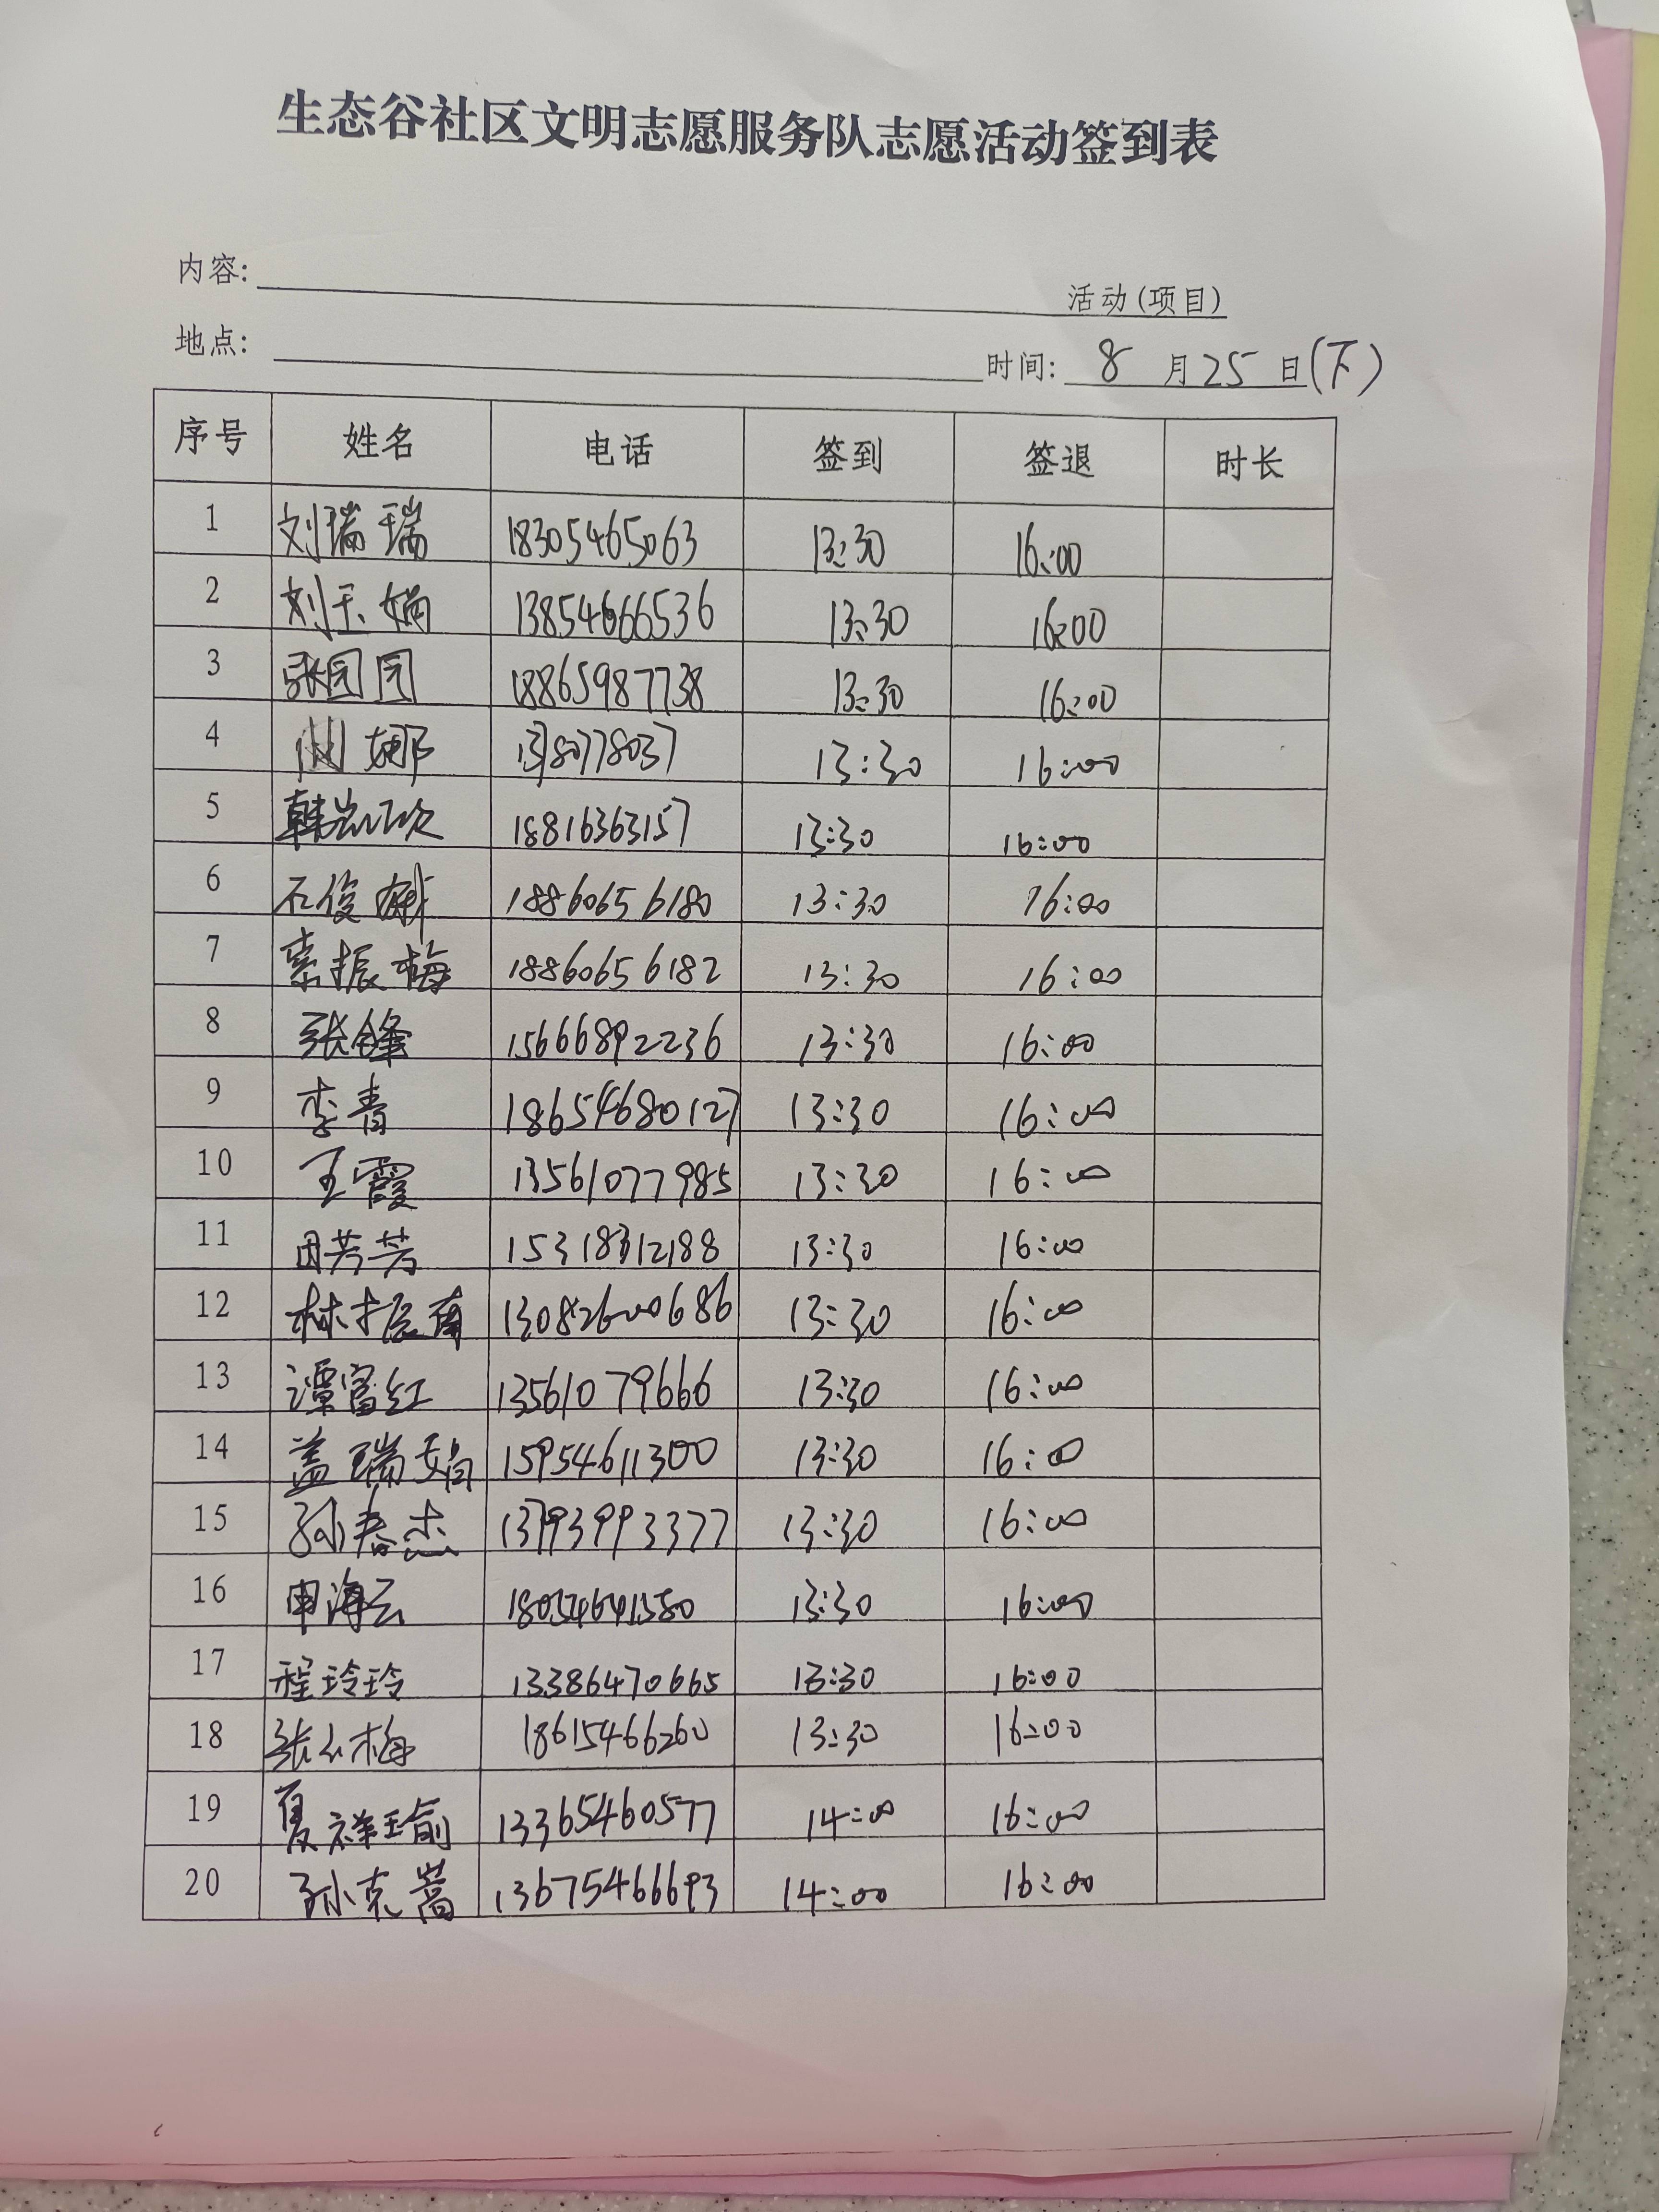 生态谷社区文明志愿服务队志愿活动签到表
内容: 活动(项目)
地点: 时间: 8 月 25 日(下)
序号 姓名 电话 签到 签退 时长
1 刘瑞瑞 18305465063 13:30 16:00
2 刘玉娟 13854666536 13:30 16:00
3 张园园 18865987738 13:30 16:00
4 娜 13:30 16:00
5 韩 18816363157 13:30 16:00
6 石俊 18860656180 13:30 16:00
7 振梅 18860656182 13:30 16:00
8 张锋 15666892236 13:30 16:00
9 李青 18654680127 13:30 16:00
10 王霞 13561077985 13:30 16:00
11 田芳芳 15318312188 13:30 16:00
12 林振南 13082600686 13:30 16:00
13 谭富红 13561079666 13:30 16:00
14 盖瑞娟 15954611300 13:30 16:00
15 孙春杰 13793993377 13:30 16:00
16 申海云 13:30 16:00
17 程玲玲 13386470665 13:30 16:00
18 张梅 18615466260 13:30 16:00
19 夏祥瑜 13365460577 14:00 16:00
20 孙克嵩 13675466693 14:00 16:00